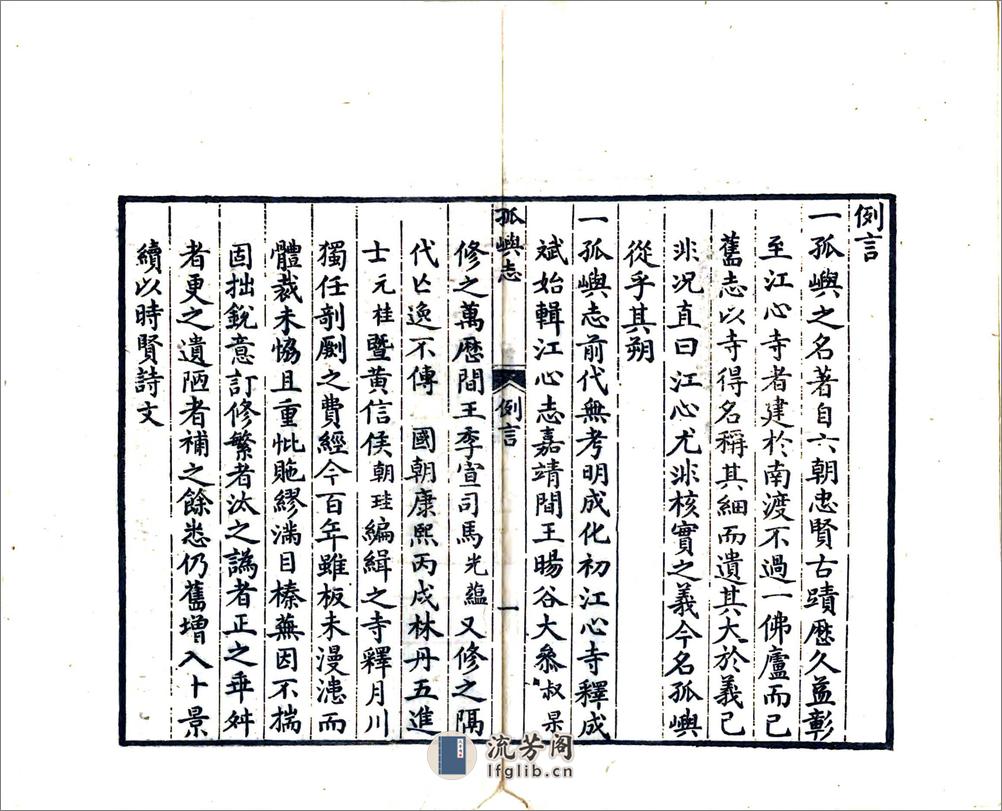 例言
一孤嶼之名著自六朝忠賢古蹟歷久益彰
至江心寺者建於南渡不過一佛廬而已
舊志以寺得名稱其細而遺其大於義已
非況直曰江心尤非核實之義今名孤嶼
從乎其朔
一孤嶼志前代無考明成化初江心寺釋成
斌始輯江心志嘉靖間王暘谷大叅叔杲
孤嶼志 例言 一
修之萬歷間王季宣司馬光蘊又修之隔
代亡逸不傳 國朝康熙丙戌林丹五進
士元桂暨黃信侯朝珪編緝之寺釋月川
獨任剞劂之費經今百年雖板未漫漶而
體裁未恊且重紕貤繆滿目榛蕪因不揣
固拙銳意訂修繁者汰之譌者正之乖舛
者更之遺陋者補之餘悉仍舊增入十景
續以時賢詩文
流芳阁
lfglib.cn